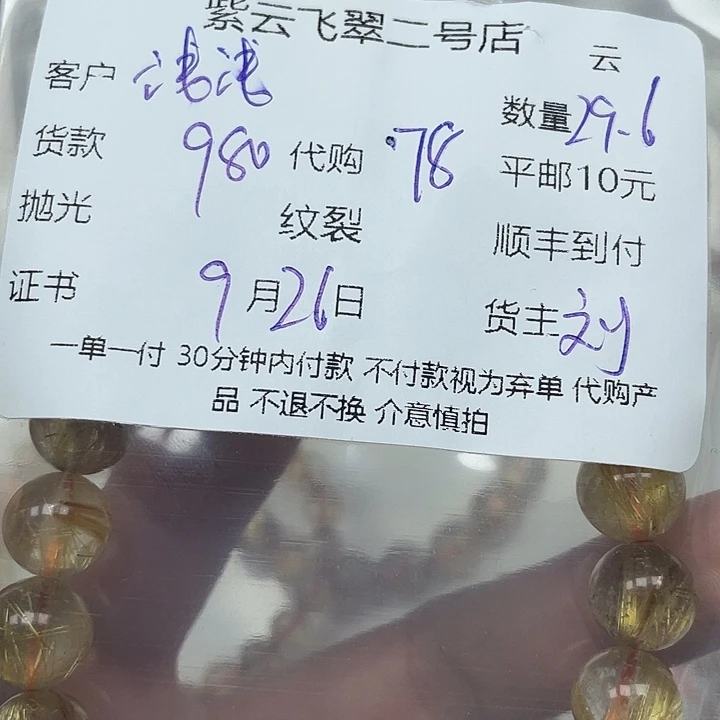 紫云飞翠二号店 云
客户 浅浅 数量 29.6
货款 980 代购 .78 平邮10元
抛光 纹裂 顺丰到付
证书 9月26日 货主 刘
一单一付 30分钟内付款 不付款视为弃单 代购产
品 不退不换 介意慎拍